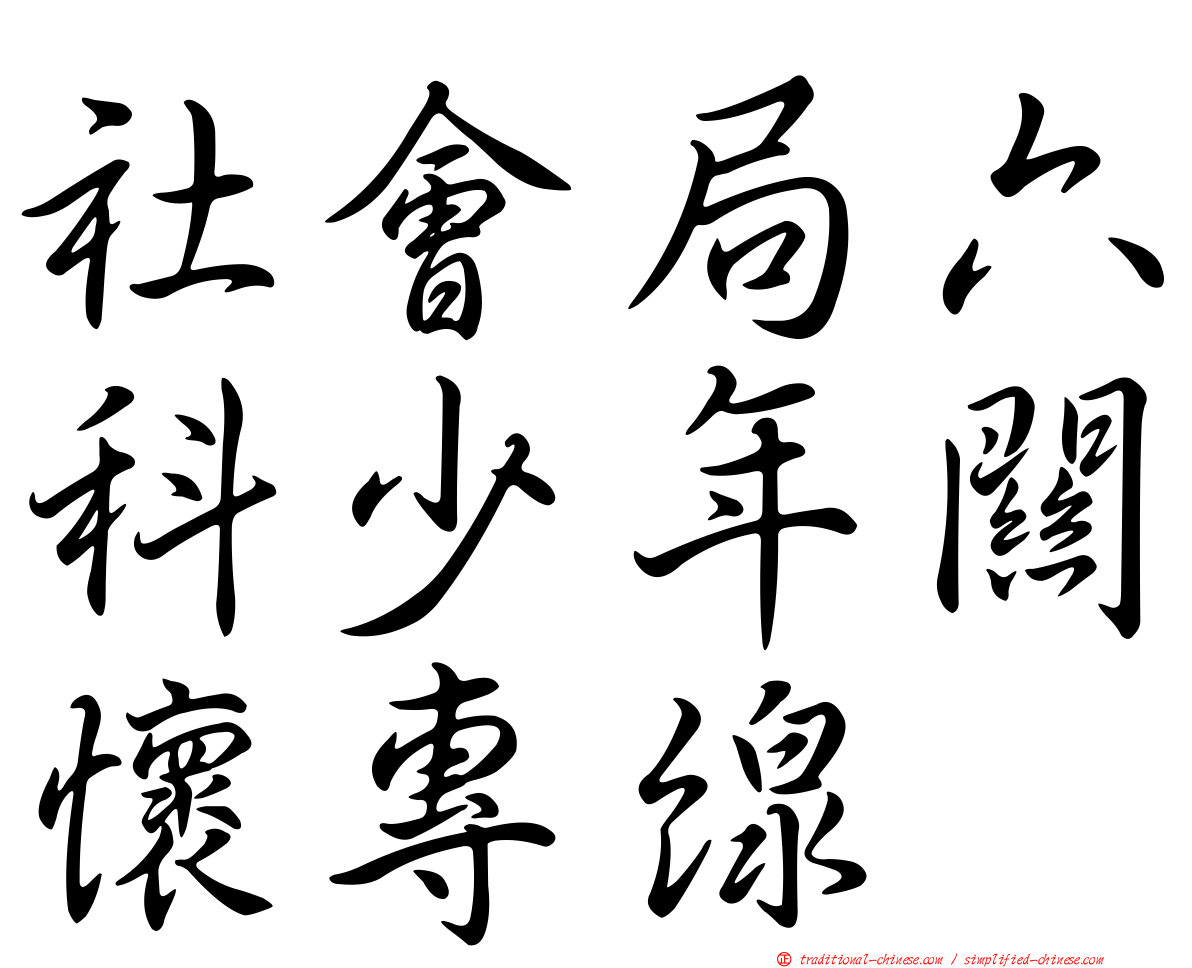 社會局六
科少年關
懷專線
正 traditional-chinese.com / simplified-chinese.com